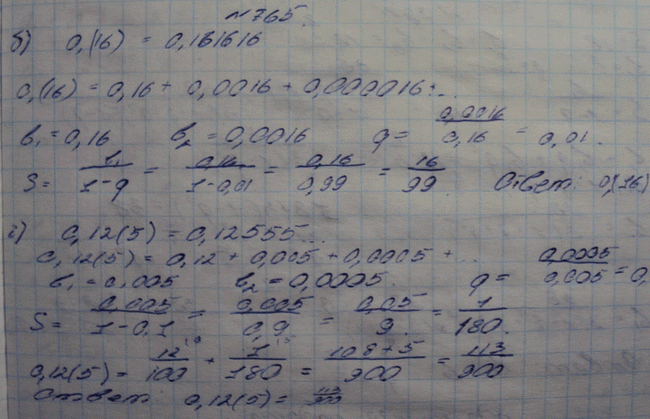 №765.
б) 0,(16) = 0,161616
0,(16) = 0,16 + 0,0016 + 0,000016 + ...
b₁ = 0,16 b₂ = 0,0016 q = 0,0016/0,16 = 0,01.
S = b₁/1-q = 0,16/1-0,01 = 0,16/0,99 = 16/99. Ответ: 0,(16)
г) 0,12(5) = 0,12555...
0,12(5) = 0,12 + 0,005 + 0,0005 + ...
b₁ = 0,005 b₂ = 0,0005. q = 0,0005/0,005 = 0,
S = 0,005/1-0,1 = 0,005/0,9 = 0,05/9 = 1/180.
0,12(5) = 12/100 + 1/180 = 108+5/900 = 113/900
Ответ: 0,12(5) = 113/900